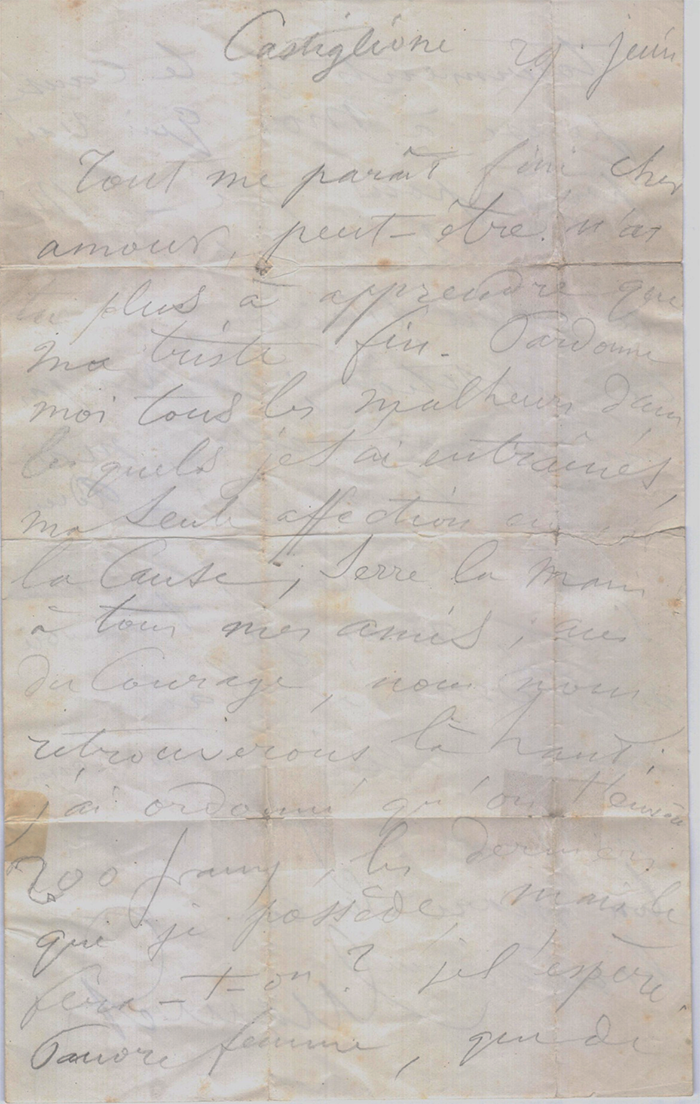 Castiglione 29 juin
Tout me paraît fini cher
amour, peut-être n'as
tu plus à apprendre que
ma triste fin. Pardonne
moi tous les malheurs dans
lesquels je t'ai entraînés,
ma seule affection
la Cause, Serre la main
à tous mes amis, aie
du Courage, nous nous
retrouverons là haut.
j'ai ordonné qu'on t'envoie
200 francs, les derniers
que je possède, mais le
fera-t-on ? je l'espère
Pauvre femme, que de